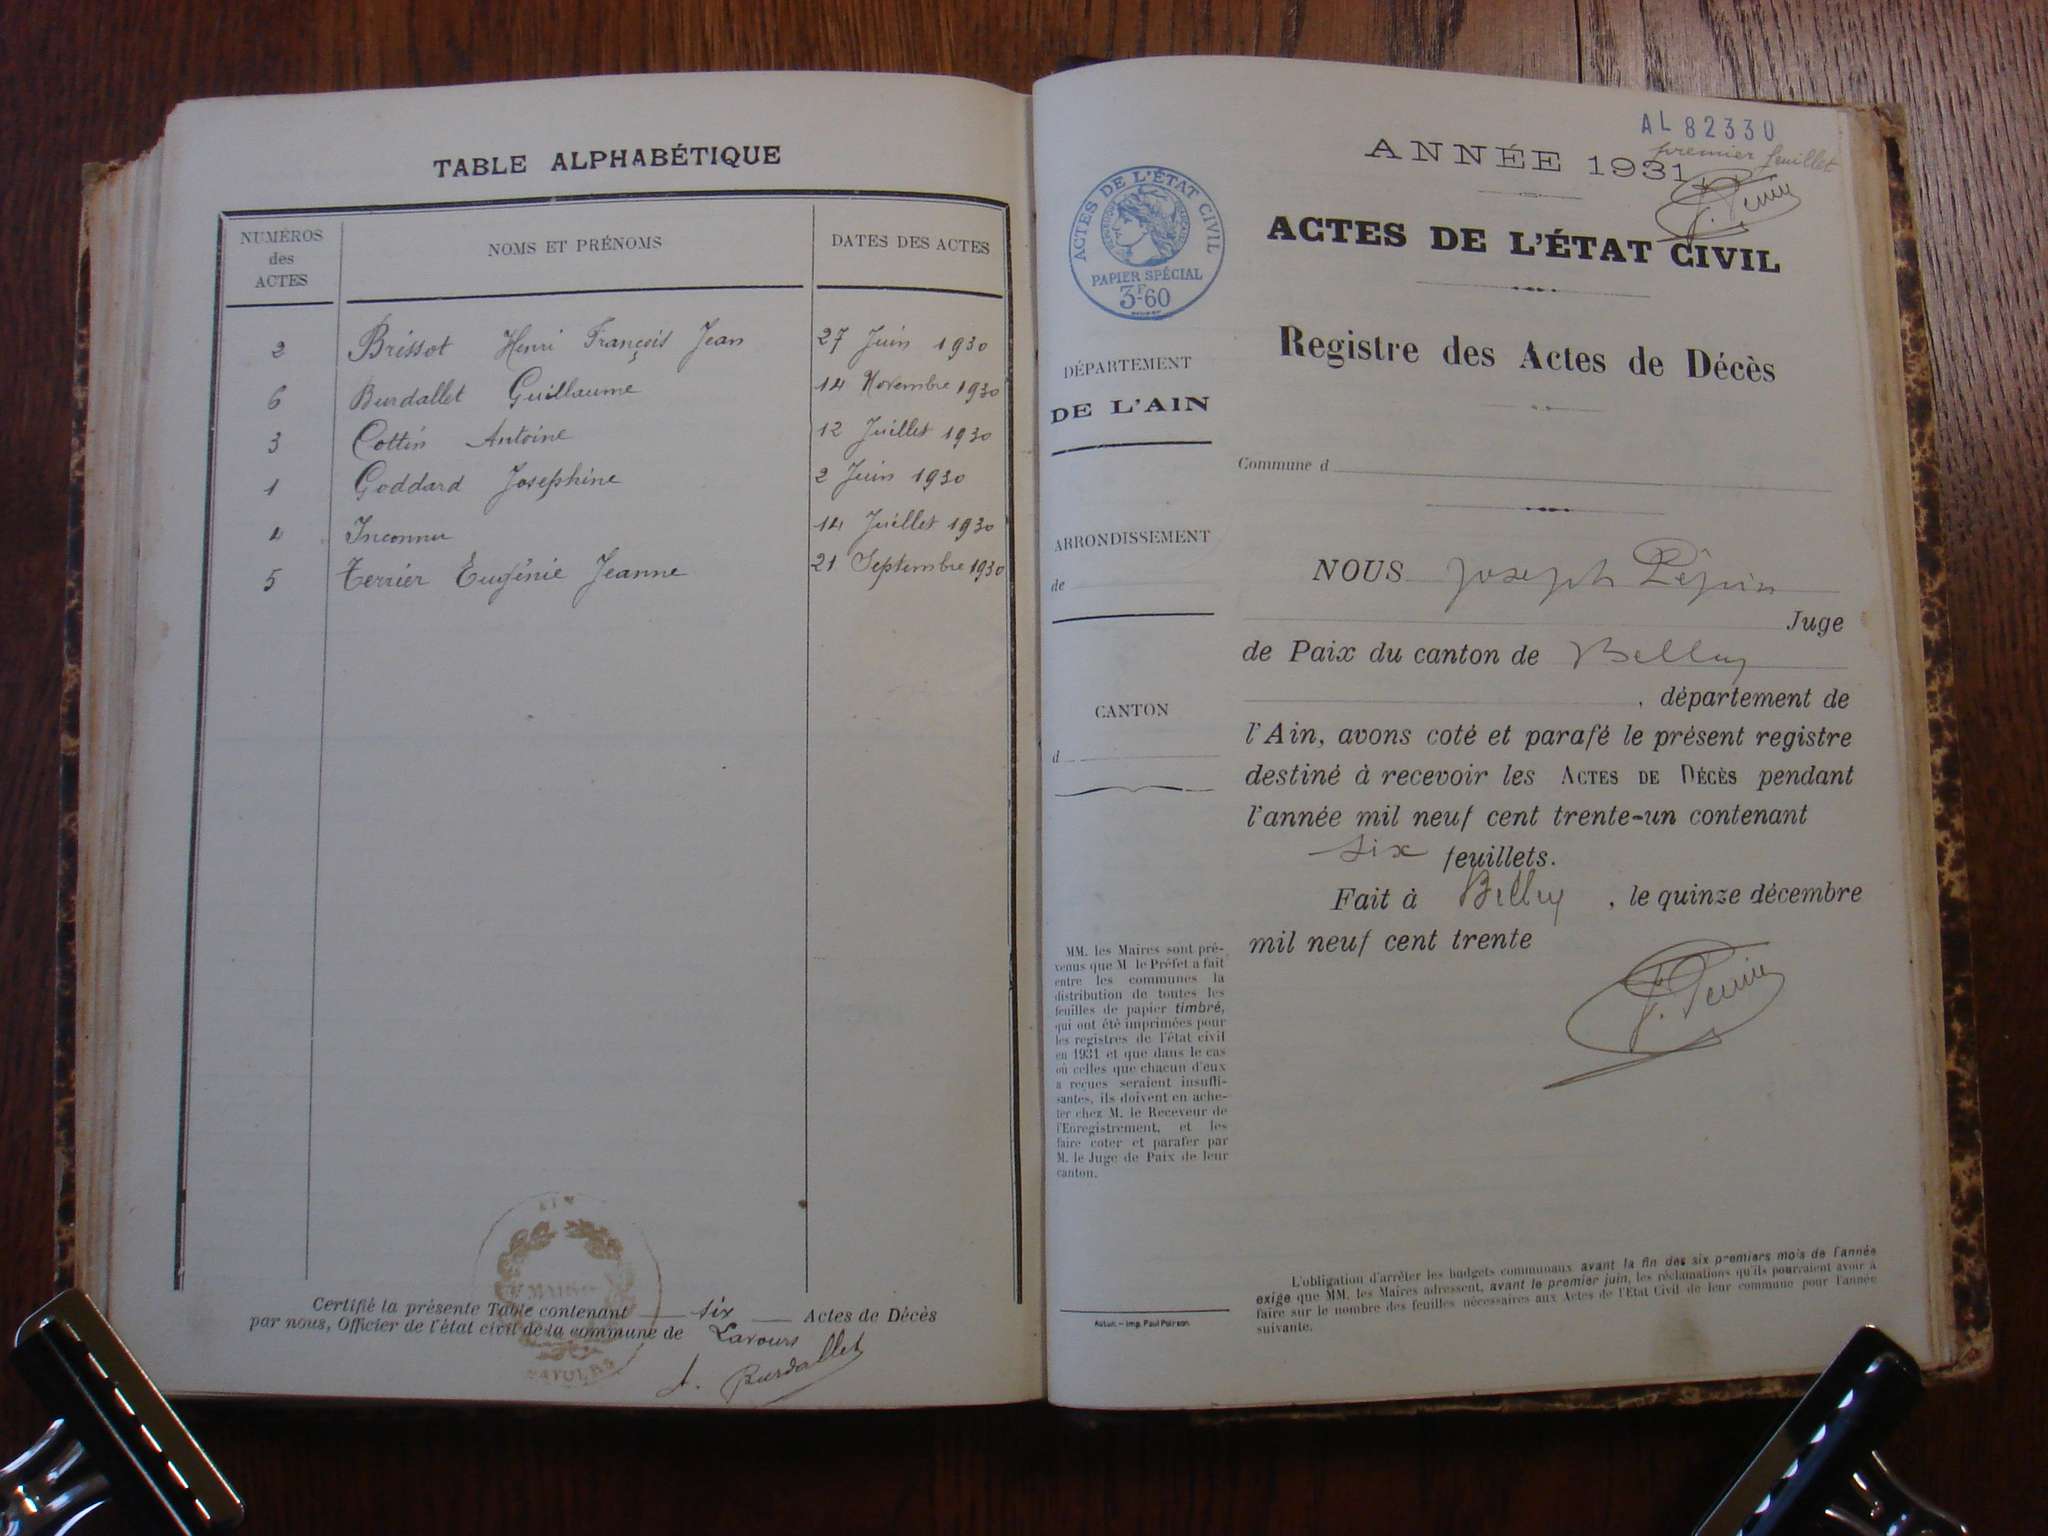 TABLE ALPHABÉTIQUE
NUMÉROS des ACTES NOMS ET PRÉNOMS DATES DES ACTES
2 Brissot Henri François Jean 27 Juin 1930
6 Burdallet Guillaume 14 Novembre 1930
3 Cottin Antoine 12 Juillet 1930
1 Goddard Josephine 2 Juin 1930
4 Inconnu 14 Juillet 1930
5 Terrier Eugénie Jeanne 21 Septembre 1930
Certifié la présente Table contenant six Actes de Décès
par nous, Officier de l'état civil de la commune de Lavours
Burdallet
AL 82330
premier feuillet
ANNÉE 1931
ACTES DE L'ÉTAT CIVIL
PAPIER SPÉCIAL
3F.60
ACTES DE L'ÉTAT CIVIL
Registre des Actes de Décès
DÉPARTEMENT
DE L'AIN
Commune d
ARRONDISSEMENT
de
CANTON
d
NOUS Joseph Pépin
Juge
de Paix du canton de Belley
, département de
l'Ain, avons coté et parafé le présent registre
destiné à recevoir les ACTES DE DÉCÈS pendant
l'année mil neuf cent trente-un contenant
six feuillets.
Fait à Belley, le quinze décembre
mil neuf cent trente
MM. les Maires sont pré-
venus que M. le Préfet a fait
entre les communes la
distribution de toutes les
feuilles de papier timbré,
qui ont été imprimées pour
les registres de l'état civil
en 1931 et que dans le cas
où celles que chacun d'eux
a reçues seraient insuffi-
santes, ils doivent en ache-
ter chez M. le Receveur de
l'Enregistrement, et les
faire coter et parafer par
M. le Juge de Paix de leur
canton.
L'obligation d'arrêter les budgets communaux avant la fin des six premiers mois de l'année
exige que MM. les Maires adressent, avant le premier juin, les réclamations qu'ils pourraient avoir à
faire sur le nombre des feuilles nécessaires aux Actes de l'Etat Civil de leur commune pour l'année
suivante.
Autun. – Imp. Paul Poirson